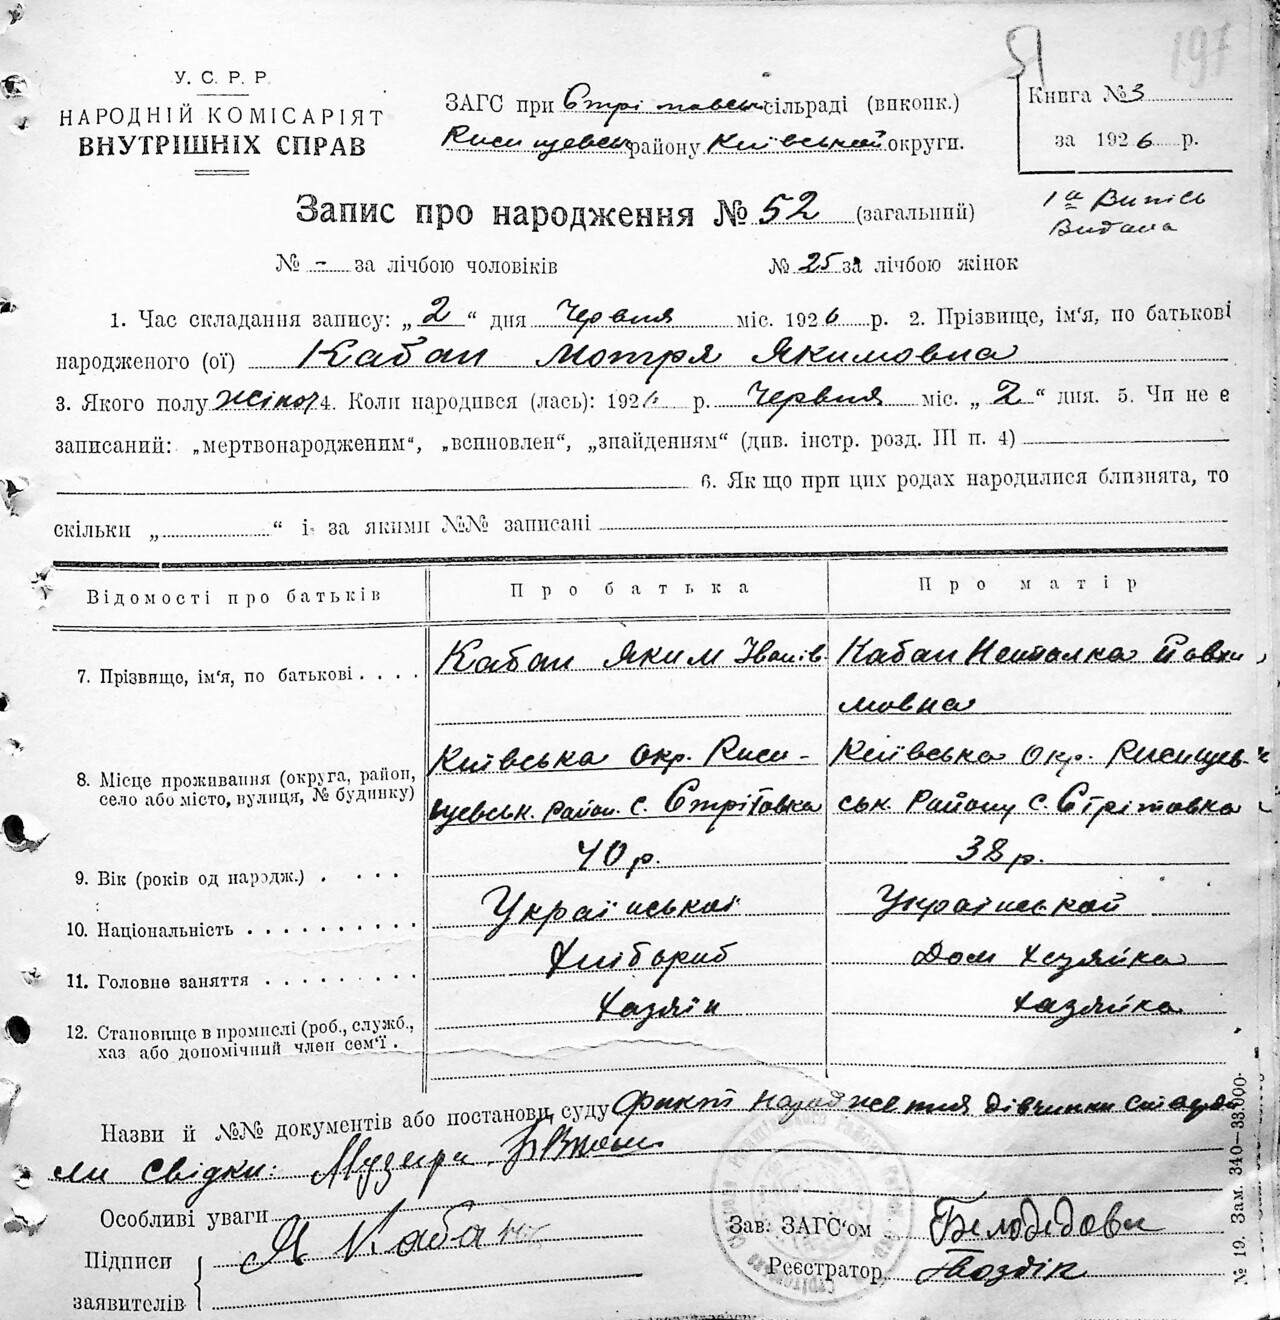 Я 197
У. С. Р. Р.
НАРОДНІЙ КОМІСАРІЯТ
ВНУТРІШНІХ СПРАВ
ЗАГС при Стрітовськ сільраді (виконк.)
Кисищевськ району Київській округи.
Книга № 3
за 1926 р.
1а Випись
Видана
Запис про народження № 52 (загальний)
№ - за лічбою чоловіків № 25 за лічбою жінок
1. Час складання запису: „2“ дня Червня міс. 1926 р. 2. Прізвище, ім'я, по батькові
народженого (ої) Кабан Мотря Якимовна
3. Якого полу жіноч 4. Коли народився (лась): 1926 р. Червня міс. „2“ дня. 5. Чи не є
записаний: „мертвонародженим“, „вспновлен“, „знайденням“ (див. інстр. розд. III п. 4)
6. Як що при цих родах народилися близнята, то
скільки „ “ і за якими №№ записані
Відомості про батьків Про батька Про матір
7. Прізвище, ім'я, по батькові . . . . Кабан Яким Іванів Кабан Явхи
мовна
8. Місце проживання (округа, район, село або місто, вулиця, № будинку) Київська окр. Киси- Київська окр. Кисищев-
щевськ. район. с. Стрітовка ськ. Району с. Стрітовка
9. Вік (років од народж.) . . . . 40 р. 38 р.
10. Національність . . . . . . . . . . Українській Українськой
11. Головне заняття . . . . . . . . Хліборіб Дом Хозяйка
12. Становище в промислі (роб., служб., хаз або допомічний член сем'ї . Хазяїн Хазяйка
Назви й №№ документів або постанови суду Факт народження дівчинки
ли свідки:
Особливі уваги
Підписи
заявителів
Я Кабан
Зав. ЗАГС'ом
Реєстратор Гвоздік
№ 19. Зам. 340—33.000